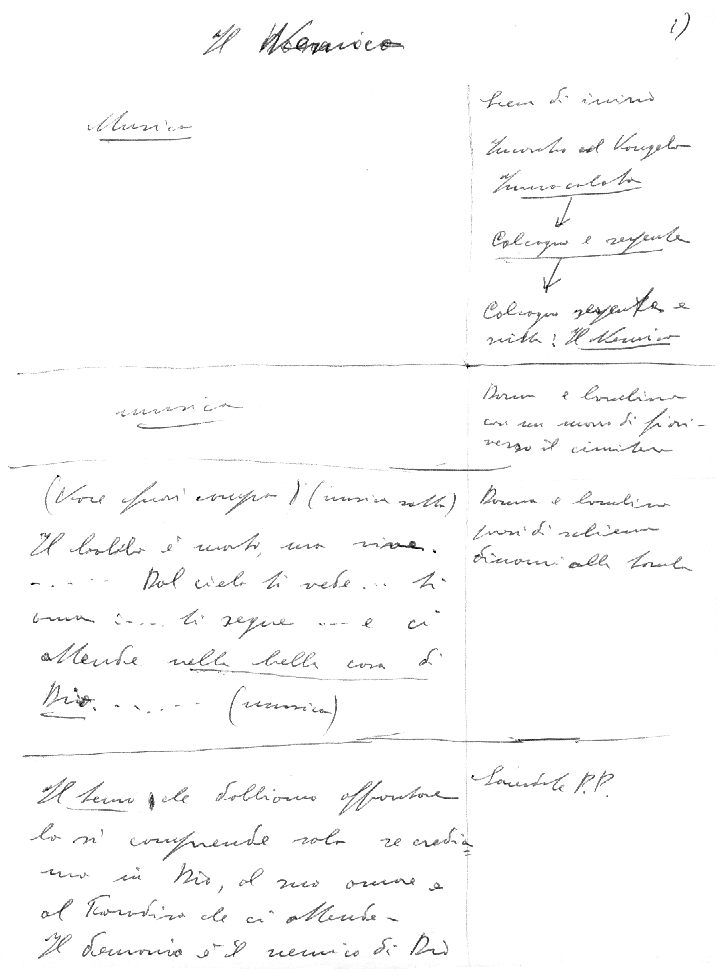 1)
Il Nemico
Musica
Scena di inizio
Incontro col Vangelo
Immacolata
Colloquio e serpente
Colloquio serpente e
scritta: Il Nemico
musica
Donna e bambina
con un mazzo di fiori -
verso il cimitero
(Voce fuori campo) (musica sotto)
Il babbo è morto, ma vive.
...... Dal cielo ti vede... ti
ama ..... ti segue .... e ci
attende nella bella casa di
Dio. ...... (musica)
Donna e bambina
presi di schiena
dinanzi alla tomba
Il tema che dobbiamo affrontare
lo si comprende solo se credia=
mo in Dio, al suo amore e
al Paradiso che ci attende -
Il demonio è il nemico di Dio
Sacerdote P.P.